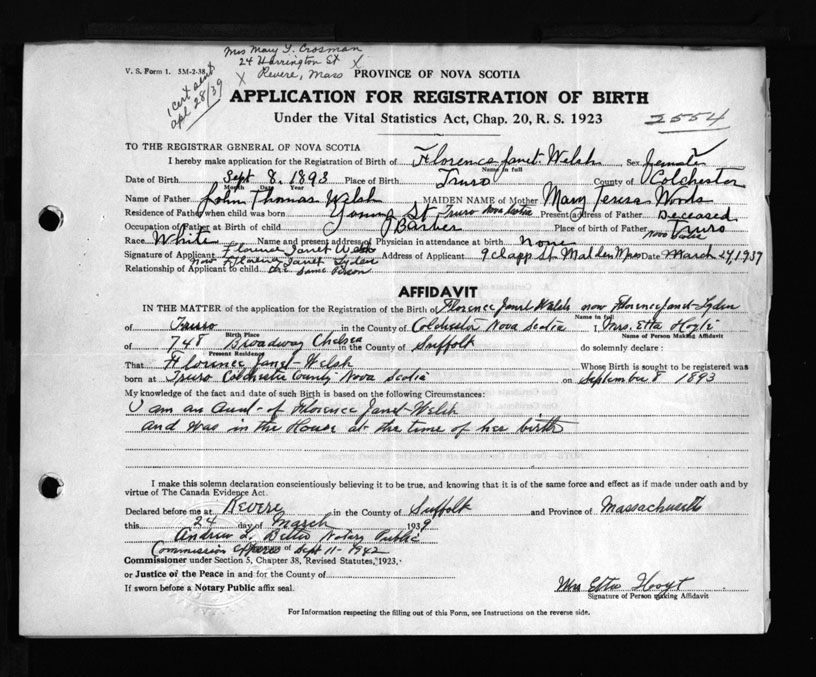 Mrs Mary T. Crosman
24 Harrington St X
X Revere, Mass
V. S. Form 1. 5M-2-38.
1 cert sent
apl 28/39
PROVINCE OF NOVA SCOTIA
APPLICATION FOR REGISTRATION OF BIRTH
Under the Vital Statistics Act, Chap. 20, R. S. 1923
2554
TO THE REGISTRAR GENERAL OF NOVA SCOTIA
I hereby make application for the Registration of Birth of Florence Janet Welsh Sex female
Name in full
Date of Birth Sept 8, 1893 Place of Birth Truro County of Colchester
Month Date Year
Name of Father John Thomas Welsh MAIDEN NAME of Mother Mary Teresa Woods
Residence of Father when child was born Young St Truro Nova Scotia Present address of Father Deceased
Occupation of Father at Birth of child Barber Place of birth of Father Truro Nova Scotia
Race White Name and present address of Physician in attendance at birth None
Signature of Applicant Florence Janet Welsh Address of Applicant 9 Clapp St. Malden Mass Date March 24, 1939
now Florence Janet Lyden
Relationship of Applicant to child the same Person
AFFIDAVIT
IN THE MATTER of the application for the Registration of the Birth of Florence Janet Welsh now Florence Janet Lyden
Name in full
of Truro in the County of Colchester Nova Scotia I, Mrs. Etta Hoyt
Birth Place Name of Person Making Affidavit
of 748 Broadway Chelsea in the County of Suffolk do solemnly declare:
Present Residence
That Florence Janet Welsh Whose Birth is sought to be registered was
born at Truro Colchester County Nova Scotia on September 8 1893
My knowledge of the fact and date of such Birth is based on the following Circumstances:
I am an Aunt of Florence Janet Welsh
and was in the House at the time of her birth
I make this solemn declaration conscientiously believing it to be true, and knowing that it is of the same force and effect as if made under oath and by
virtue of The Canada Evidence Act.
Declared before me at Revere in the County of Suffolk and Province of Massachusetts
this 24 day of March 1939
Andrew L. Bettis Notary Public
Commission Expires Sept 11-1942
Commissioner under Section 5, Chapter 38, Revised Statutes, 1923,
or Justice of the Peace in and for the County of
If sworn before a Notary Public affix seal.
Mrs Etta Hoyt
Signature of Person making Affidavit
For Information respecting the filling out of this Form, see Instructions on the reverse side.